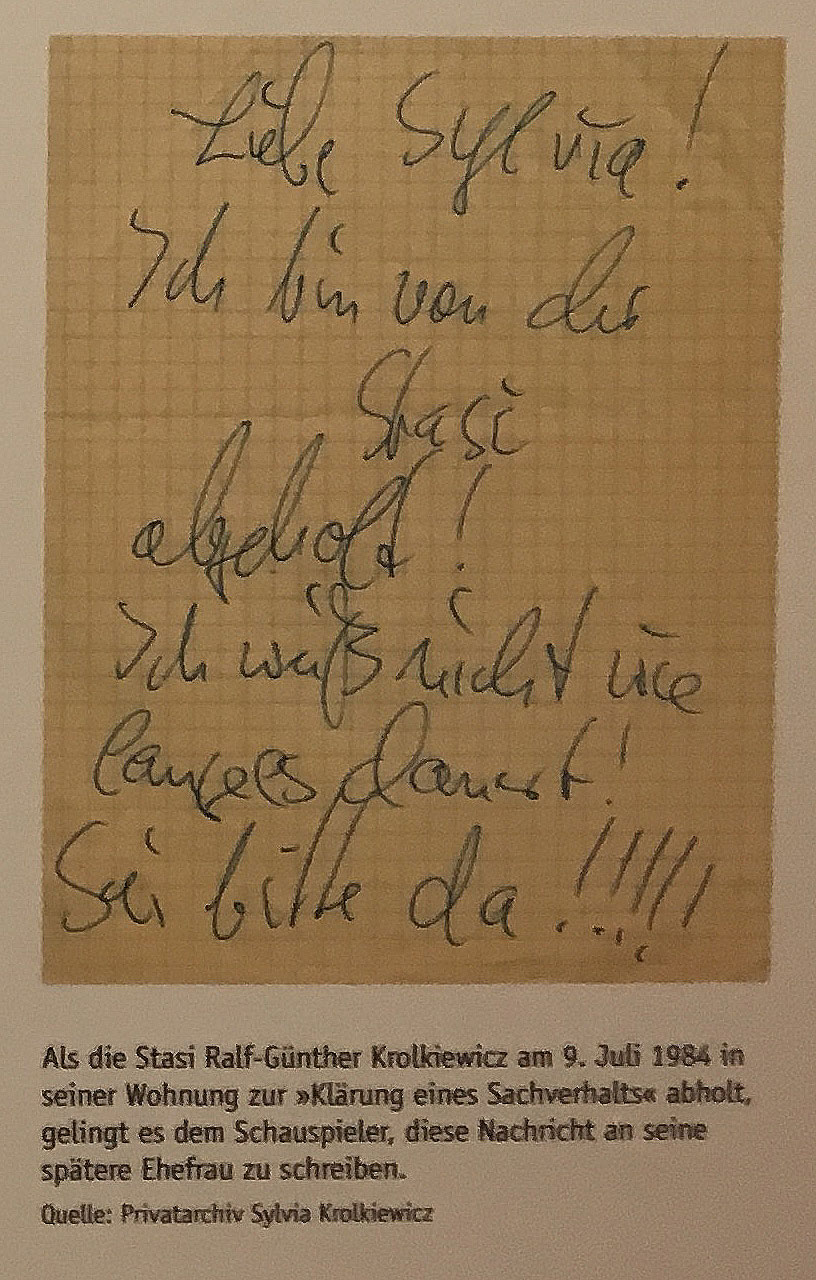 Liebe Sylvia!
Ich bin von der
Stasi
abgeholt!
Ich weiß nicht wie
lange es dauert!
Sei bitte da !!!!!
Als die Stasi Ralf-Günther Krolkiewicz am 9. Juli 1984 in
seiner Wohnung zur »Klärung eines Sachverhalts« abholt,
gelingt es dem Schauspieler, diese Nachricht an seine
spätere Ehefrau zu schreiben.
Quelle: Privatarchiv Sylvia Krolkiewicz